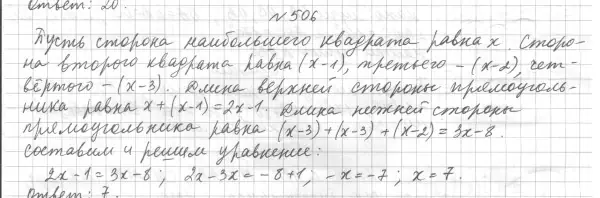 Ответ: 20.
№506
Пусть сторона наибольшего квадрата равна x. Сторо-
на второго квадрата равна (x-1), третьего - (x-2), чет-
вёртого - (x-3). Длина верхней стороны прямоуголь-
ника равна x+(x-1)=2x-1. Длина нижней стороны
прямоугольника равна (x-3)+(x-3)+(x-2)=3x-8.
Составим и решим уравнение:
2x-1=3x-8; 2x-3x=-8+1; -x=-7; x=7.
Ответ: 7.